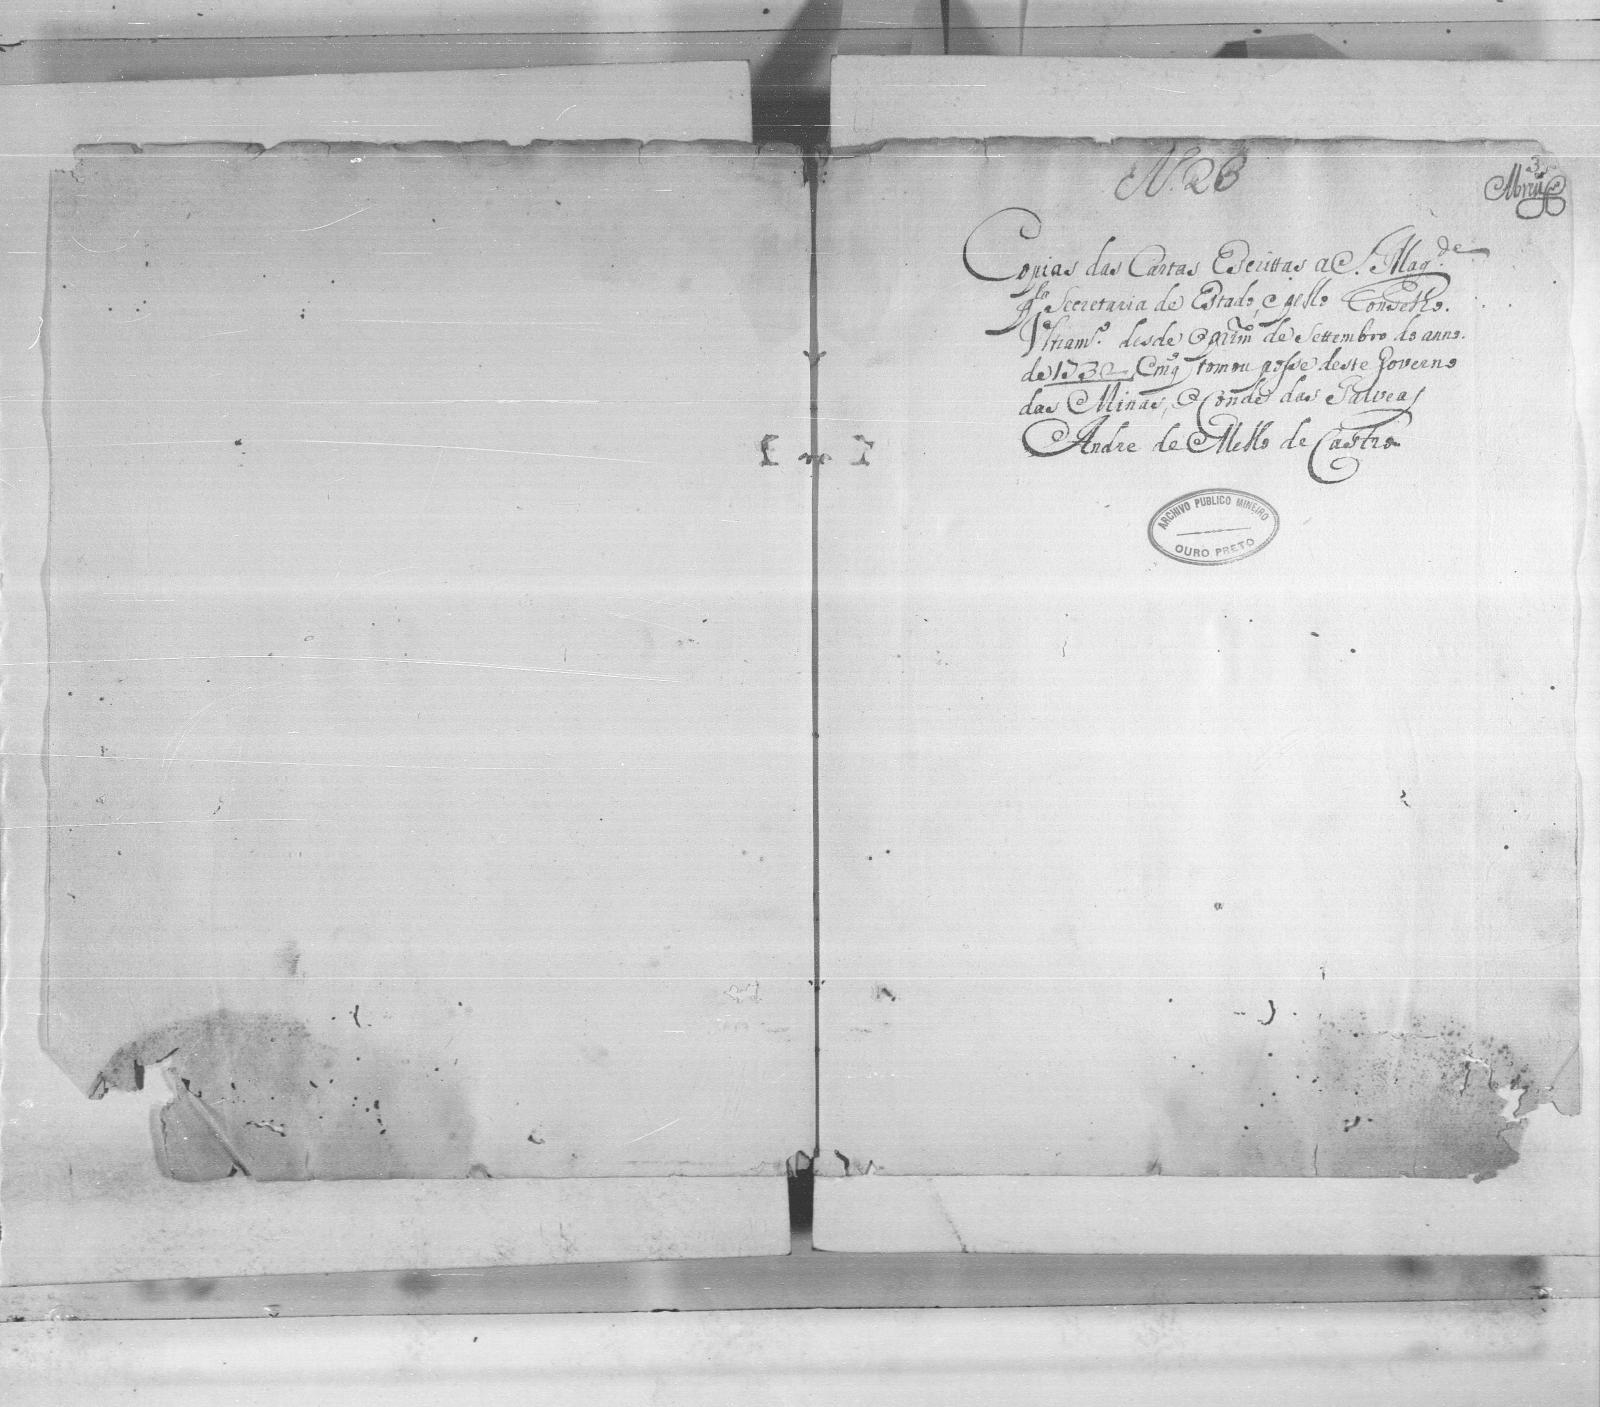 N. 23
3
Abreu
Copias das Cartas Escrittas a S. Magde
pla Secretaria de Estado, e pello Conselho.
Vltramo. desde o prim.ro de Settembro do anno.
de 1732 Em q tomou posse deste Governo
das Minas, o Conde das Galveas
Andre de Mello de Castro
ARCHIVO PUBLICO MINEIRO
OURO PRETO